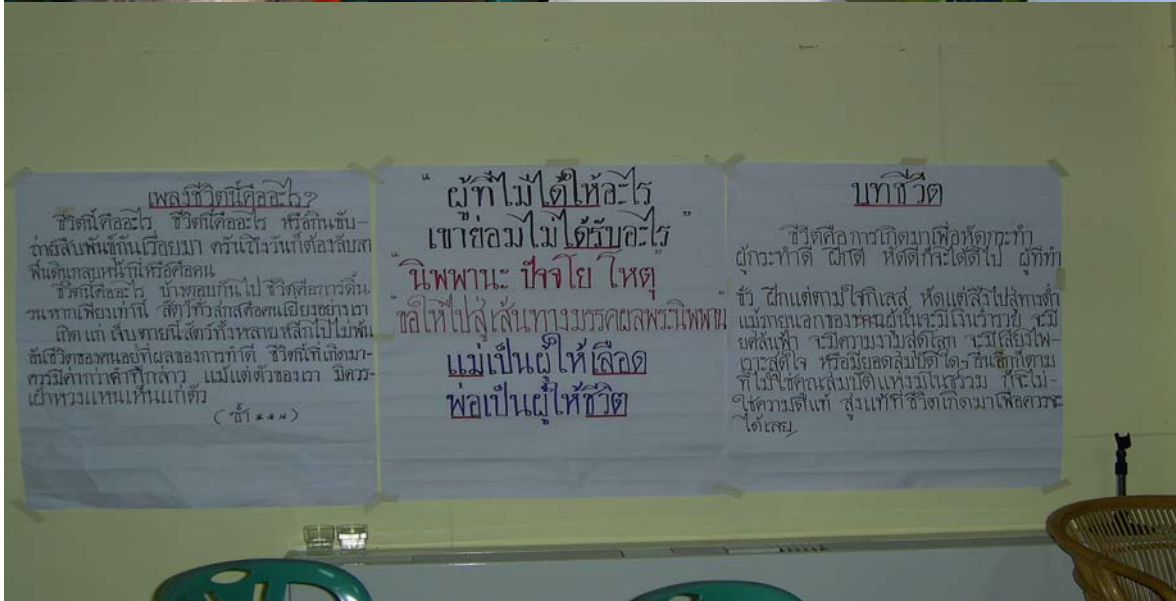 เพลงชีวิตนี้คืออะไร?
ชีวิตนี้คืออะไร ชีวิตนี้คืออะไร หรือกินขับ-
ถ่ายสืบพันธุ์กันเรื่อยมา ครั้นถึงวันก็ต้องลับลา
พื้นดินกลบหน้านี้หรือคือคน
ชีวิตนี้คืออะไร บ้างตอบกันไป ชีวิตคือการดิ้น
รนหากเพียงเท่านี้ สัตว์ทั่วสกลคือคนเยี่ยงอย่างเรา
เกิด แก่ เจ็บ ตายนี้ สัตว์ทั้งหลายหลีกไปไม่พ้น
อันชีวิตของคนอยู่ที่ผลของการทำดี ชีวิตนี้ที่เกิดมา-
ควรมีค่ากว่าคำที่กล่าว แม้แต่ตัวของเรา มิควร-
เฝ้าหวงแหนเห็นแก่ตัว
(ซ้ำ ***)
" ผู้ที่ไม่ได้ให้อะไร
เขาย่อมไม่ได้รับอะไร "
"นิพพานะ ปัจจโย โหตุ"
"ขอให้ไปสู่เส้นทางมรรคผลพระนิพพาน"
แม่เป็นผู้ให้เลือด
พ่อเป็นผู้ให้ชีวิต
บทชีวิต
ชีวิตคือการเกิดมาเพื่อหัดกระทำ
ผู้กระทำดี ฝึกดี หัดดีก็จะได้ดีไป ผู้ที่ทำ
ชั่ว ฝึกแต่ตามใจกิเลส หัดแต่สิ่งไปสู่ทางต่ำ
แม้ภายนอกของผู้นั้นจะมีเงินร่ำรวย จะมี
ยศล้นฟ้า จะมีความงามสุดโลก จะมีเสียงไพ-
เราะสุดใจ หรือมียอดสมบัติใดๆ อื่นอีกก็ตาม
ที่ไม่ใช่คุณสมบัติแห่งมโนธรรม ก็จะไม่-
ใช่ความดีแท้ สูงแท้ที่ชีวิตเกิดมาเพื่อควรจะ
ได้เลย